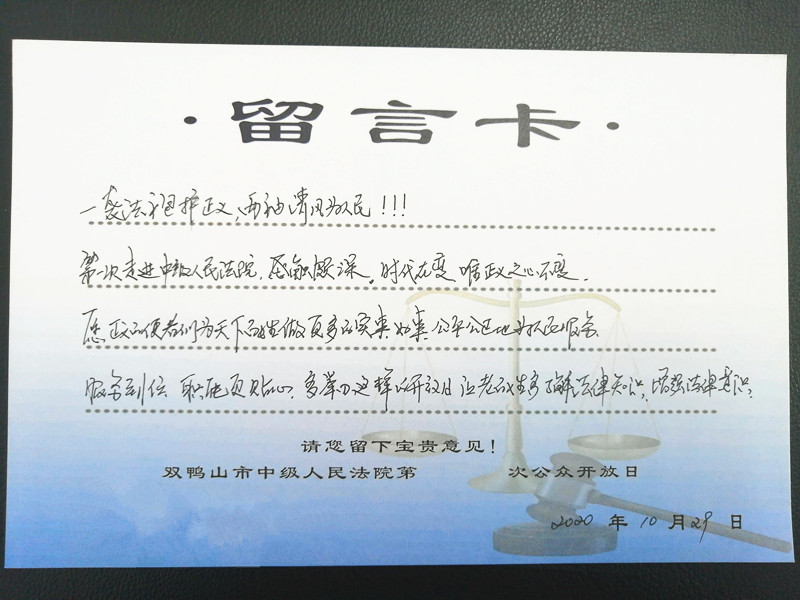 ·留言卡·
一袭法袍护正义，两袖清风为人民!!!
第一次走进中级人民法院，感触颇深。时代在变 唯正义之心不变.
愿正义使者们为天下百姓做更多的实事好事 公平公正地为人民服务
服务到位 职能更贴心，多举办这样的开放日 让老百姓多了解法律知识，增强法律意识.
请您留下宝贵意见!
双鸭山市中级人民法院第 次公众开放日
2020 年 10 月 29 日